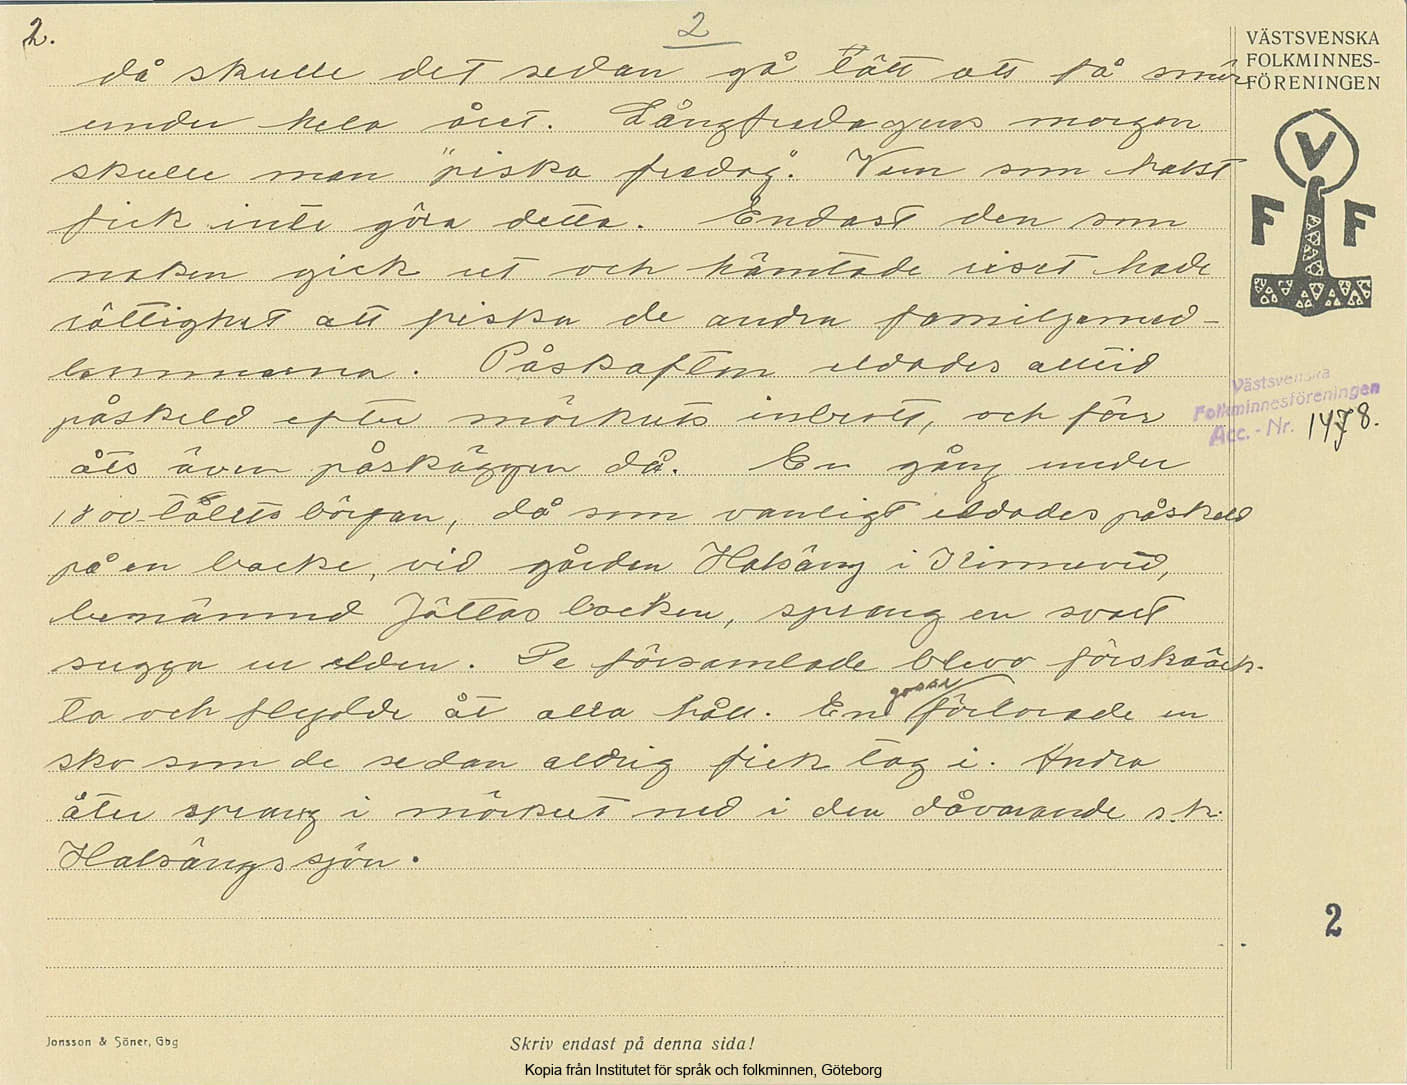 2.
2
då skulle det sedan gå lätt att få smör
under hela året. Långfredagens morgon
skulle man "piska fredag". Vem som hälst
fick inte göra detta. Endast den som
naken gick ut och hämtade riset hade
rättighet att piska de andra familjemed-
lemmarna. Påskafton eldades alltid
påskeld efter mörkrets inbrott, och förr
åts även påskäggen då. En gång under
1800-talets början, då som vanligt eldades påskeld
på en backe, vid gården Halsäng i Kinneved,
benämnd Jättas backen, sprang en svart
sugga ur elden. De församlade blevo förskräck-
ta och flydde åt alla håll. En gosse förlorade en
sko som de sedan aldrig fick tag i. Andra
åter sprang i mörkret ned i den dåvarande s.k.
Halsängssjön.
VÄSTSVENSKA
FOLKMINNES-
FÖRENINGEN
V
F F
Västsvenska
Folkminnesföreningen
Acc. - Nr. 1478.
2
Jonsson & Söner, Gbg
Skriv endast på denna sida!
Kopia från Institutet för språk och folkminnen, Göteborg